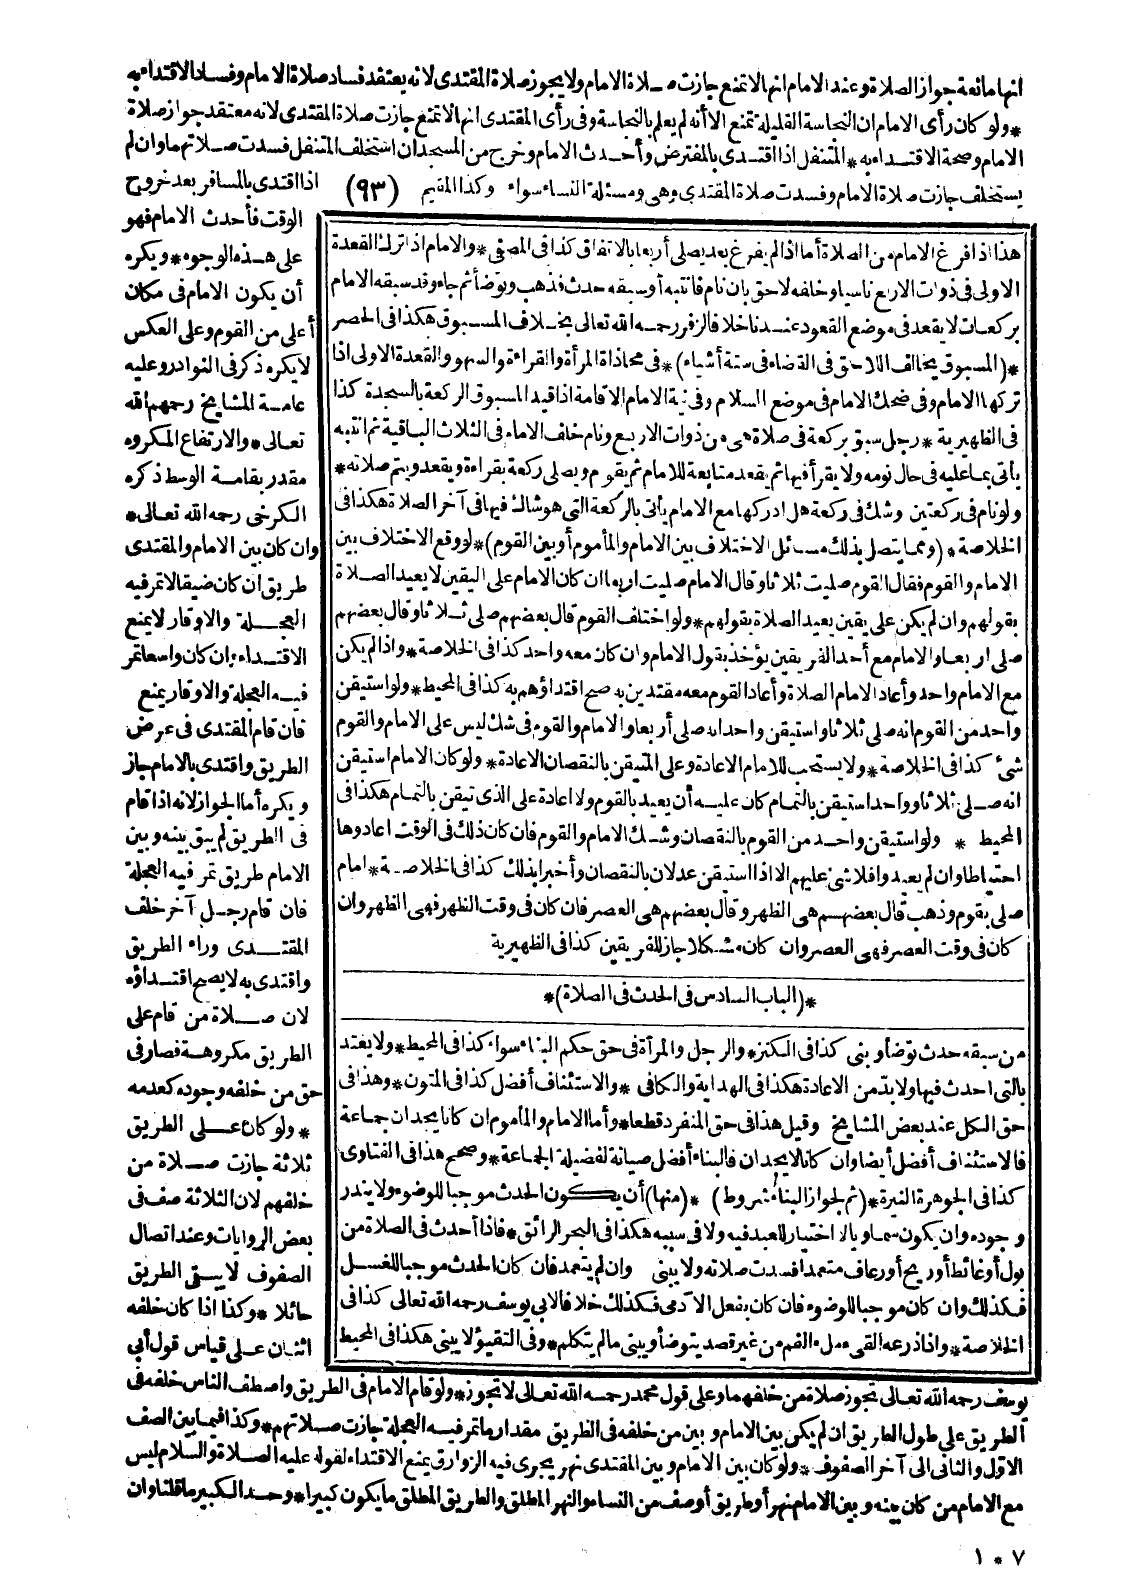 انها مانعة جواز الصلاة وعند الامام انها لا تمنع جازت صلاة الامام ولا يجوز صلاة المقتدى لانه يعتقد فساد صلاة الامام وفساد الاقتداء به
* ولو كان رأى الامام ان النجاسة القليلة تمنع الا أنه لم يعلم بالنجاسة وفى رأى المقتدى انها لا تمنع جازت صلاة المقتدى لانه معتقد جواز صلاة
الامام وصحة الاقتداء به * المتنفل اذا اقتدى بالمفترض وأحدث الامام وخرج من المسجد ان استخلف المتنفل فسدت صلاتهما وان لم
يستخلف جازت صلاة الامام وفسدت صلاة المقتدى وهى ومسئلة النساء سواء وكذا المقيم (٩٣) اذا اقتدى بالمسافر بعد خروج
الوقت فأحدث الامام فهو
على هذه الوجوه * ويكره
أن يكون الامام فى مكان
أعلى من القوم وعلى العكس
لا يكره ذكر فى النوادر وعليه
عامة المشايخ رحمهم الله
تعالى * والارتفاع المكروه
مقدر بقامة الوسط ذكره
الكرخى رحمه الله تعالى *
وان كان بين الامام والمقتدى
طريق ان كان ضيقا لا تمر فيه
العجلة والاوقار لا يمنع
الاقتداء وان كان واسعا تمر
فيه العجلة والاوقار يمنع
فان قام المقتدى فى عرض
الطريق واقتدى بالامام جاز
ويكره أما الجواز لانه اذا قام
فى الطريق لم يبق بينه وبين
الامام طريق تمر فيه العجلة
فان قام رجل آخر خلف
المقتدى وراء الطريق
واقتدى به لا يصح اقتداؤه
لان صلاة من قام على
الطريق مكروهة فصار فى
حق من خلفه وجوده كعدمه
* ولو كان على الطريق
ثلاثة جازت صلاة من
خلفهم لان الثلاثة صف فى
بعض الروايات وعند اتصال
الصفوف لا يبقى الطريق
حائلا * وكذا اذا كان خلفه
اثنان على قياس قول أبى
هذا اذا فرغ الامام من الصلاة أما اذا لم يفرغ بعد يصلى أربعا بالاتفاق كذا فى المصفى * والامام اذا ترك القعدة
الاولى فى ذوات الاربع ناسيا وخلفه لاحق بان نام فانتبه أو سبقه حدث فذهب وتوضأ ثم جاء وقد سبقه الامام
بركعات لا يقعد فى موضع القعود عندنا خلافا لزفر رحمه الله تعالى بخلاف المسبوق هكذا فى الحصر
* (المسبوق يخالف اللاحق فى القضاء فى ستة أشياء) * فى محاذاة المرأة والقراءة والسهو والقعدة الاولى اذا
تركها الامام وفى ضحك الامام فى موضع السلام وفى نية الامام الاقامة اذا قيد المسبوق الركعة بالسجدة كذا
فى الظهيرية * رجل سبق بركعة فى صلاة هى من ذوات الاربع ونام خلف الامام فى الثلاث الباقية ثم انتبه
يأتى بما عليه فى حال نومه ولا يقرأ فيها ثم يقعد متابعة للامام ثم يقوم ويصلى ركعة بقراءة ويقعد ويتم صلاته *
ولو نام فى ركعتين وشك فى ركعة هل ادركها مع الامام يأتى بالركعة التى هو شاك فيها فى آخر الصلاة هكذا فى
الخلاصة * (ومما يتصل بذلك مسائل الاختلاف بين الامام والمأموم أو بين القوم) * لو وقع الاختلاف بين
الامام والقوم فقال القوم صليت ثلاثا وقال الامام صليت اربعا ان كان الامام على اليقين لا يعيد الصلاة
بقولهم وان لم يكن على يقين يعيد الصلاة بقولهم * ولو اختلف القوم قال بعضهم صلى ثلاثا وقال بعضهم
صلى اربعا والامام مع أحد الفريقين يؤخذ بقول الامام وان كان معه واحد كذا فى الخلاصة * واذا لم يكن
مع الامام واحد وأعاد الامام الصلاة وأعاد القوم معه مقتدين به صح اقتداؤهم به كذا فى المحيط * ولو استيقن
واحد من القوم انه صلى ثلاثا واستيقن واحد انه صلى أربعا والامام والقوم فى شك ليس على الامام والقوم
شئ كذا فى الخلاصة * ولا يستحب للامام الاعادة وعلى المتيقن بالنقصان الاعادة * ولو كان الامام استيقن
انه صلى ثلاثا وواحد استيقن بالتمام كان عليه أن يعيد بالقوم ولا اعادة على الذى تيقن بالتمام هكذا فى
المحيط * ولو استيقن واحد من القوم بالنقصان وشك الامام والقوم فان كان ذلك فى الوقت اعادوها
احتياطا وان لم يعيدوا فلا شئ عليهم الا اذا استيقن عدلان بالنقصان وأخبرا بذلك كذا فى الخلاصة * امام
صلى بقوم وذهب قال بعضهم هى الظهر وقال بعضهم هى العصر فان كان فى وقت الظهر فهى الظهر وان
كان فى وقت العصر فهى العصر وان كان مشكلا جاز للفريقين كذا فى الظهيرية
* (الباب السادس فى الحدث فى الصلاة) *
من سبقه حدث توضأ وبنى كذا فى الكنز * والرجل والمرأة فى حق حكم البناء سواء كذا فى المحيط * ولا يعتد
بالتى احدث فيها ولا بد من الاعادة هكذا فى الهداية والكافى * والاستئناف أفضل كذا فى المتون * وهذا فى
حق الكل عند بعض المشايخ وقيل هذا فى حق المنفرد قطعا * وأما الامام والمأموم ان كانا يجدان جماعة
فالاستئناف أفضل أيضا وان كانا لا يجدان فالبناء أفضل صيانة لفضيلة الجماعة * وصحح هذا فى الفتاوى
كذا فى الجوهرة النيرة * (ثم لجواز البناء شروط) * (منها) أن يكون الحدث موجبا للوضوء ولا يندر
وجوده وان يكون سماويا لا اختيار للعبد فيه ولا فى سببه هكذا فى البحر الرائق * فاذا أحدث فى الصلاة من
بول أو غائط أو ريح أو رعاف متعمدا فسدت صلاته ولا يبنى وان لم يتعمد فان كان الحدث موجبا للغسل
فكذلك وان كان موجبا للوضوء فان كان بفعل الآدمى فكذلك خلافا لابى يوسف رحمه الله تعالى كذا فى
الخلاصة * واذا ذرعه القىء ملء الفم من غير قصد يتوضأ ويبنى ما لم يتكلم * وفى التقيؤ لا يبنى هكذا فى المحيط
يوسف رحمه الله تعالى تجوز صلاة من خلفهما وعلى قول محمد رحمه الله تعالى لا تجوز * ولو قام الامام فى الطريق واصطف الناس خلفه فى
الطريق على طول الطريق ان لم يكن بين الامام وبين من خلفه فى الطريق مقدار ما تمر فيه العجلة جازت صلاتهم * وكذا فيما بين الصف
الاول والثانى الى آخر الصفوف * ولو كان بين الامام وبين المقتدى نهر يجرى فيه الزوارق يمنع الاقتداء لقوله عليه الصلاة والسلام ليس
مع الامام من كان بينه وبين الامام نهر أو طريق أو صف من النساء والنهر المطلق والطريق المطلق ما يكون كبيرا * وحد الكبير ما قلنا وان
١٠٧